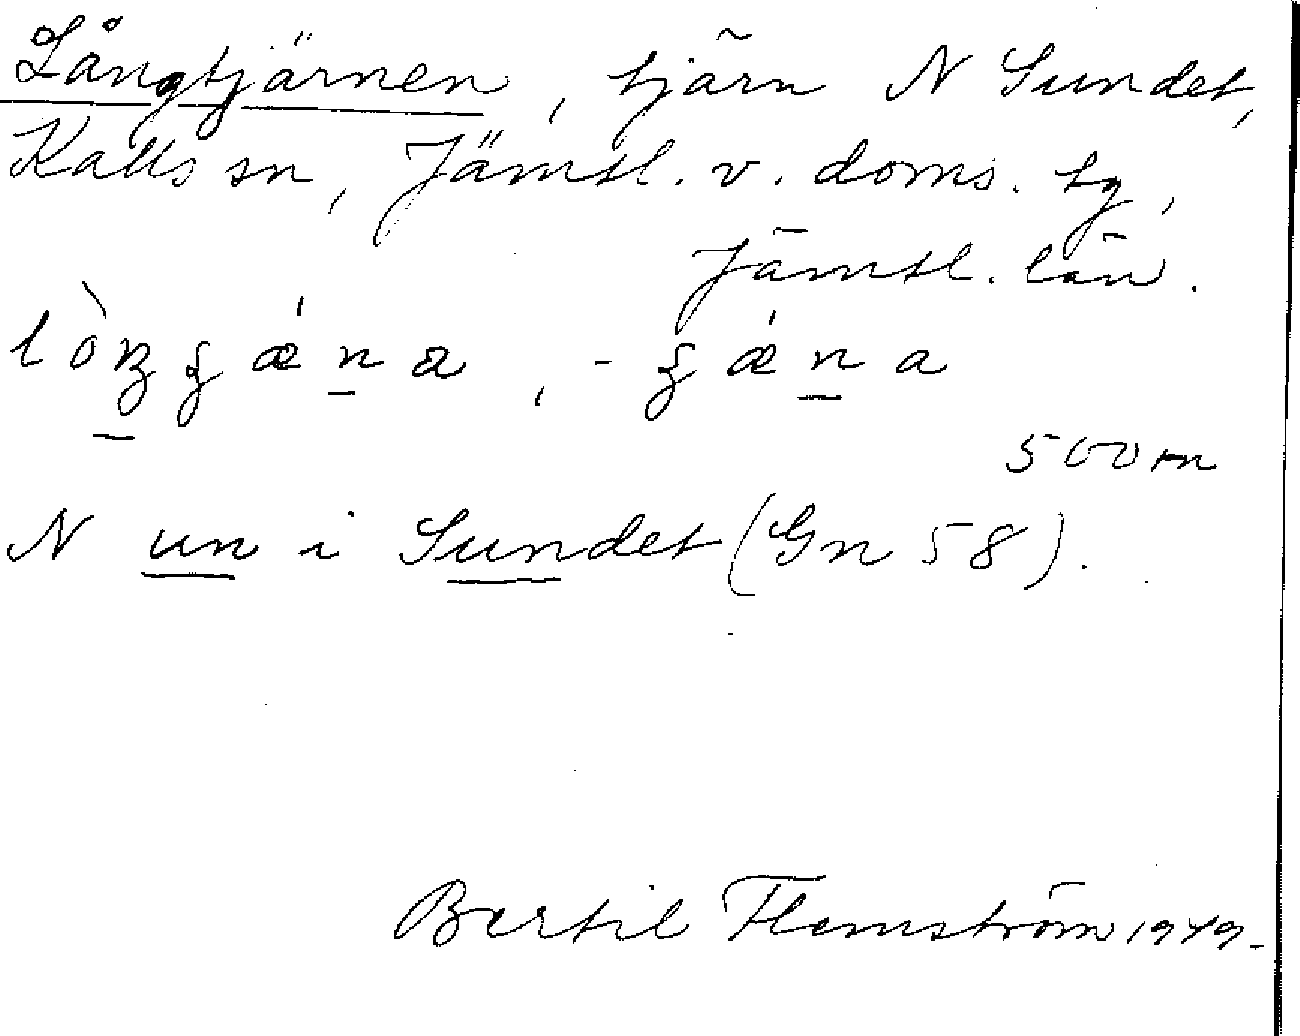 Långtjärnen, tjärn N Sundet,
Kalls sn, Jämtl. v. doms. tg,
Jämtl. län.
500 m
N un i Sundet (Gn 58).
Bertil Flemström 1949.